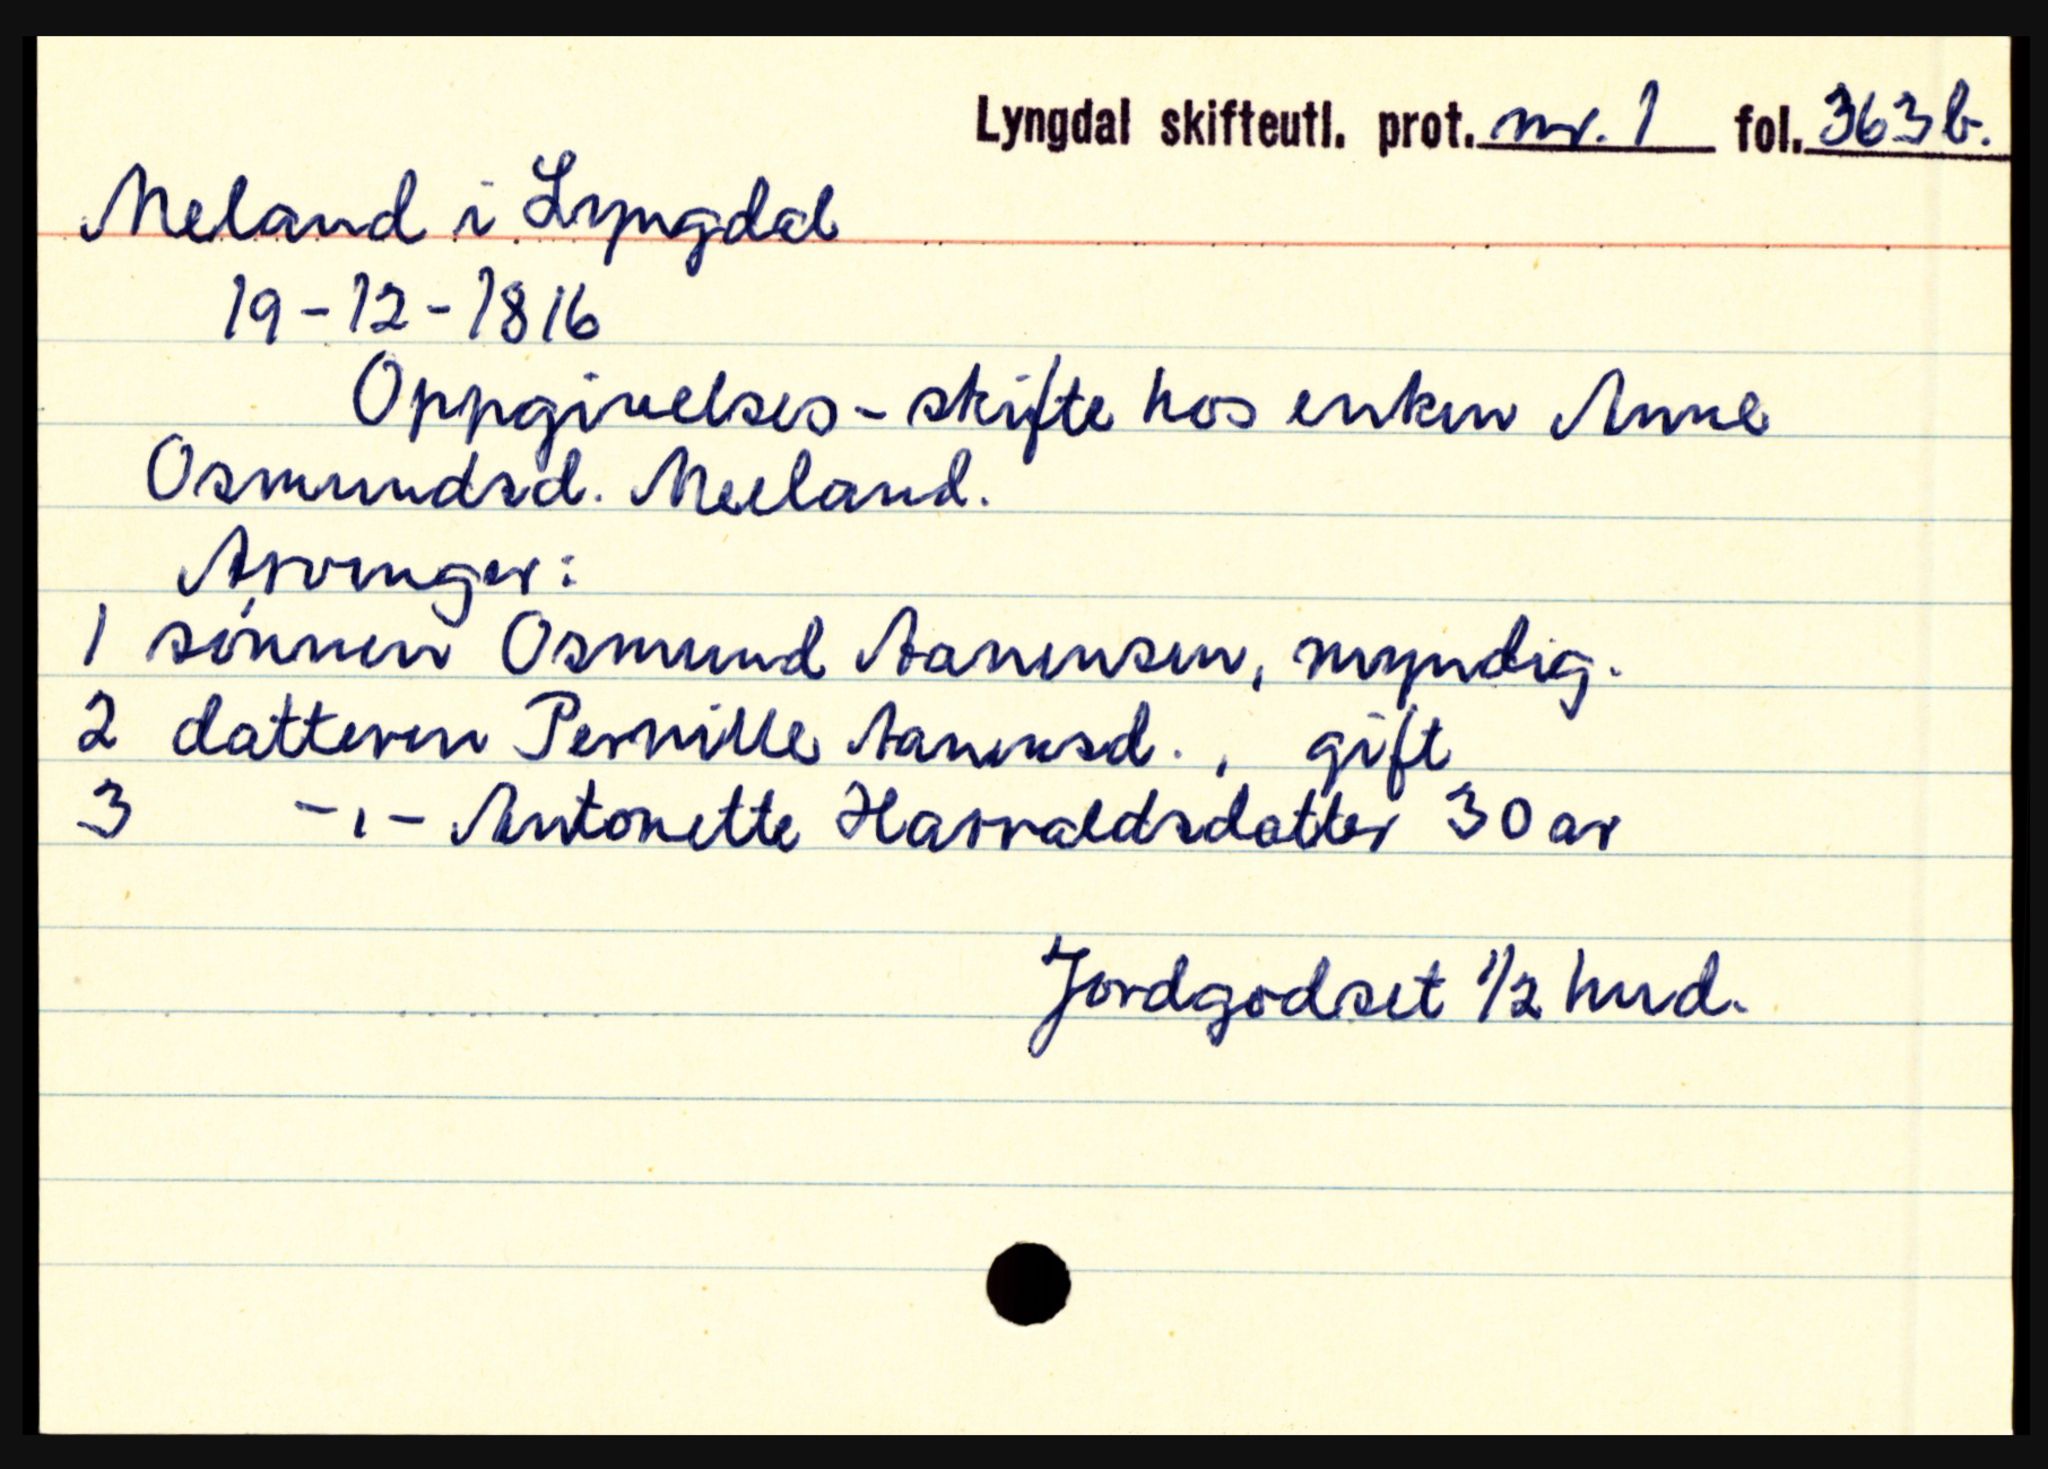 Lyngdal skifteutl. prot. nr. 1 fol. 363b.
Meland i Lyngdal
19-12-1816
Oppgivelses-skifte hos enken Anne
Osmundsd. Meeland.
Arvinger:
1 sønnen Osmund Aanensen, myndig.
2 datteren Pernille Aanensd., gift
3 -,- Antonette Harvaldsdatter 30 ar
Jordgodset 1/2 hud.